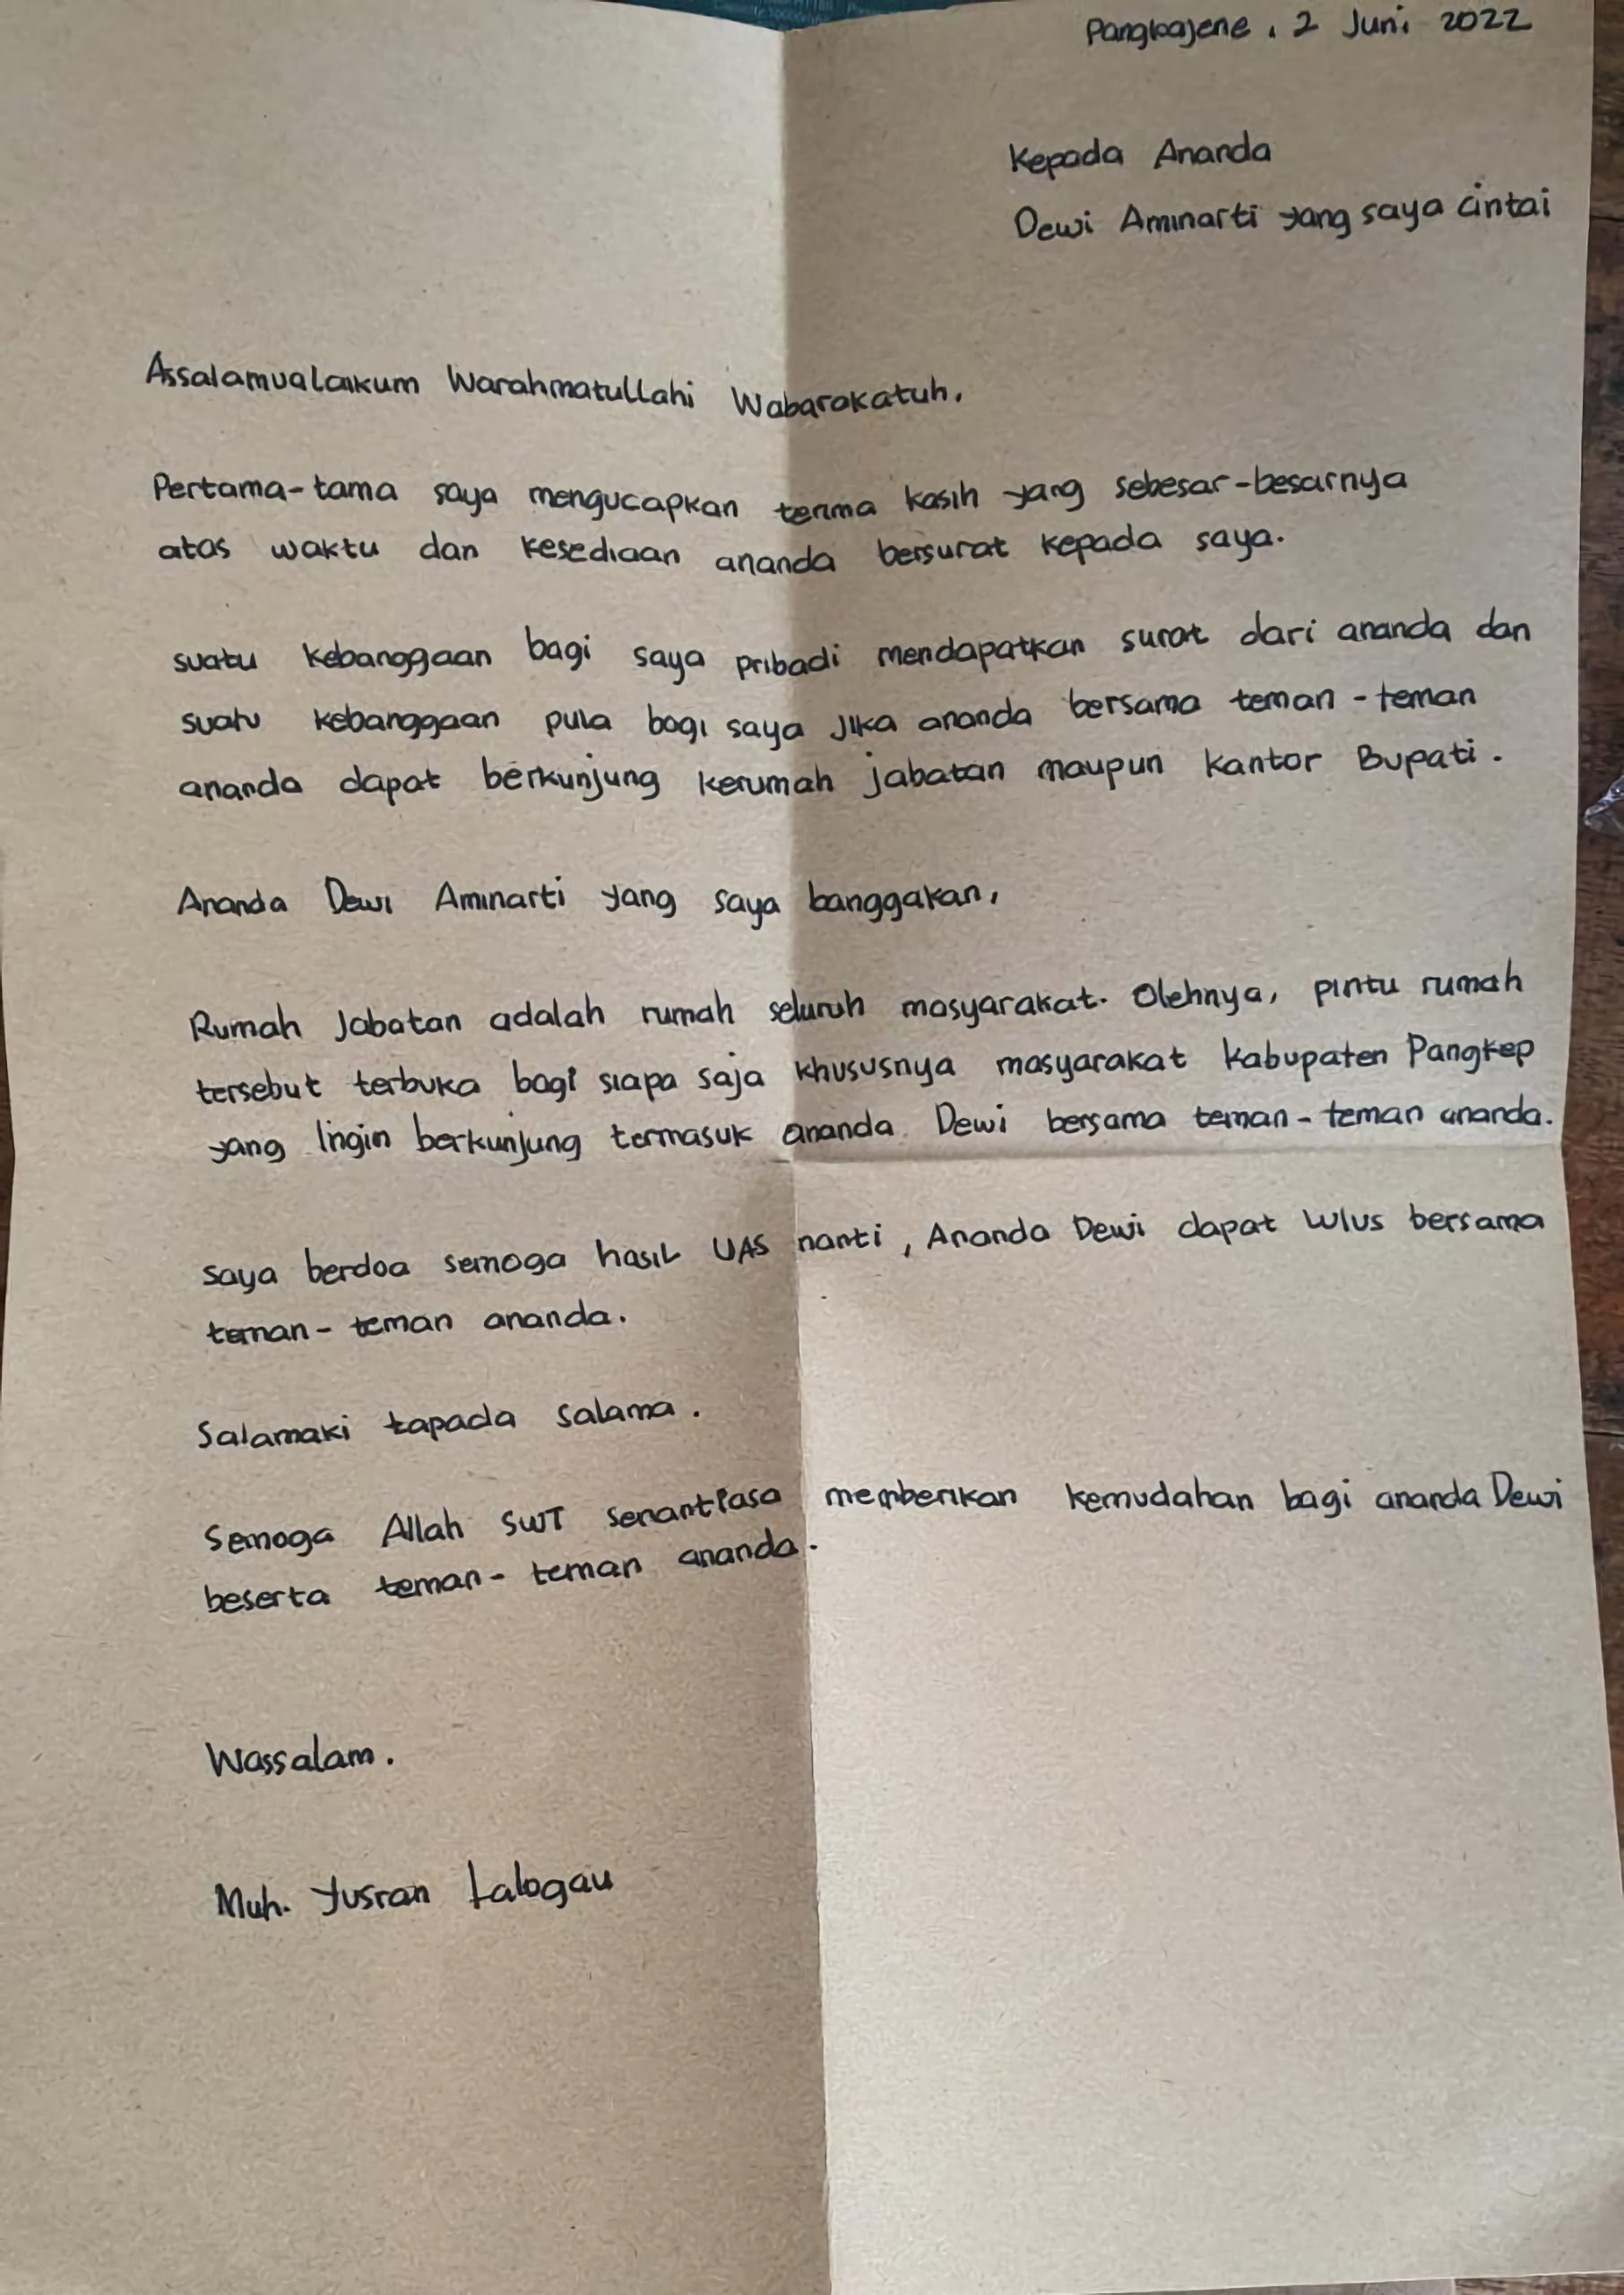 Pangkajene, 2 Juni 2022
Kepada Ananda
Dewi Aminarti yang saya cintai
Assalamualaikum Warahmatullahi Wabarokatuh,
Pertama-tama saya mengucapkan terima kasih yang sebesar-besarnya
atas waktu dan kesediaan ananda bersurat kepada saya.
suatu kebanggaan bagi saya pribadi mendapatkan surat dari ananda dan
suatu kebanggaan pula bagi saya jika ananda bersama teman-teman
ananda dapat berkunjung kerumah jabatan maupun kantor Bupati.
Ananda Dewi Aminarti yang saya banggakan,
Rumah Jabatan adalah rumah seluruh masyarakat. Olehnya, pintu rumah
tersebut terbuka bagi siapa saja khususnya masyarakat kabupaten Pangkep
yang Ingin berkunjung termasuk ananda Dewi bersama teman-teman ananda.
Saya berdoa semoga hasil UAS nanti, Ananda Dewi dapat lulus bersama
teman-teman ananda.
Salamaki tapada salama.
Semoga Allah SWT senantiasa memberikan kemudahan bagi ananda Dewi
beserta teman-teman ananda.
Wassalam.
Muh. Yusran Lalogau